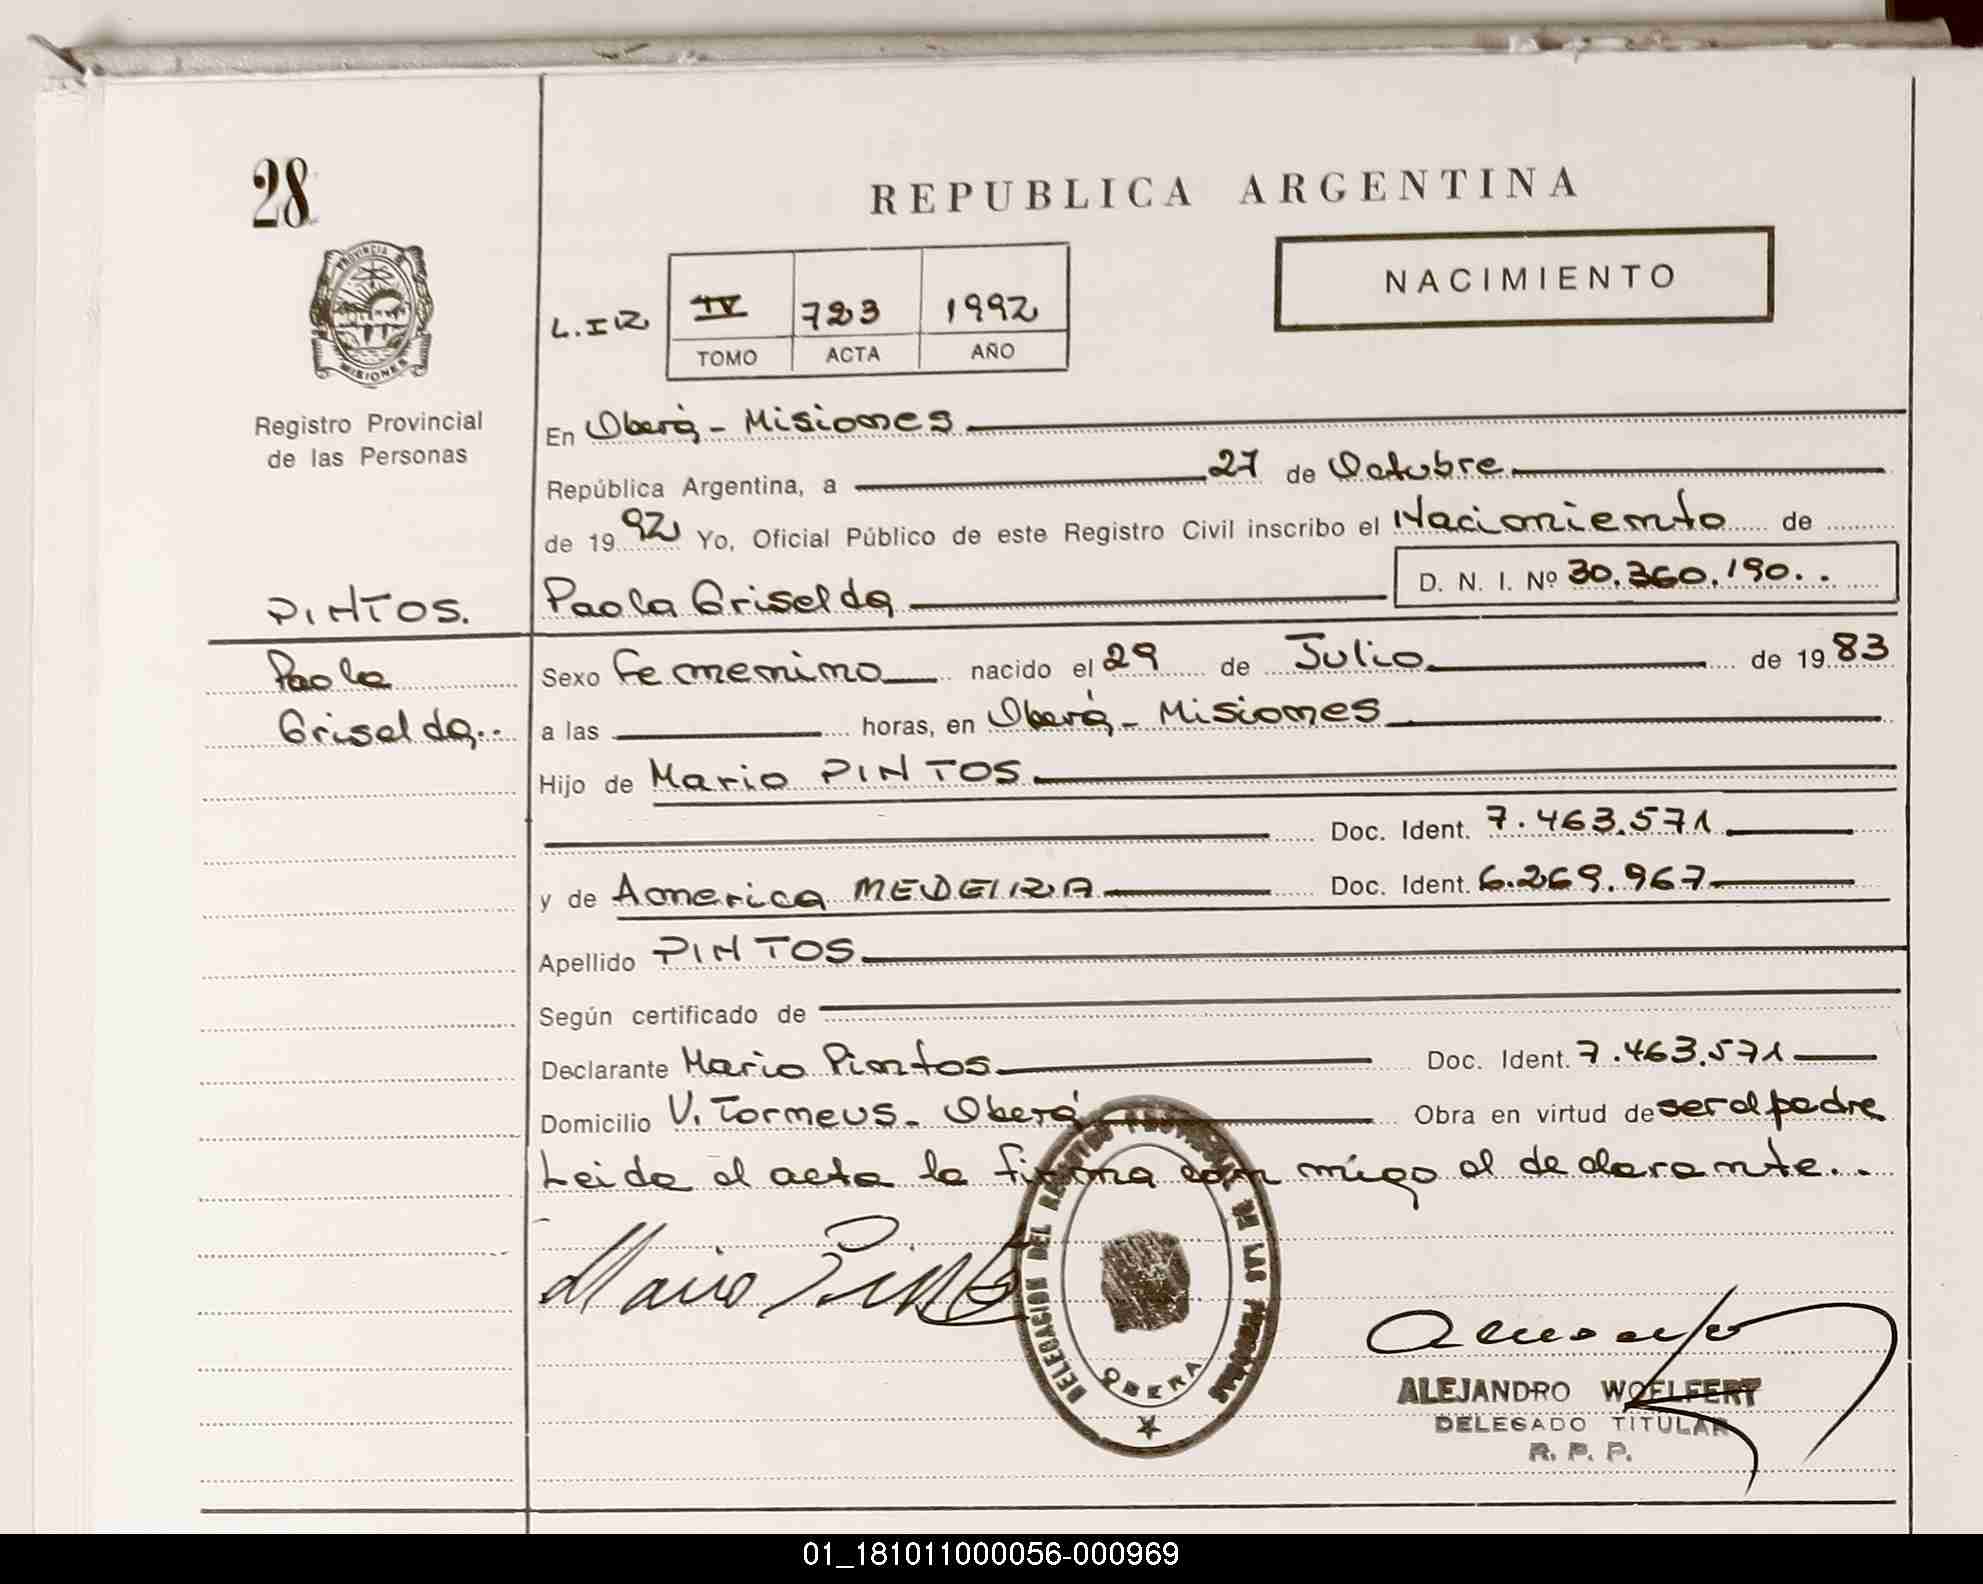 28
REPUBLICA ARGENTINA
NACIMIENTO
PROVINCIA
MISIONES
L.IR IV 723 1992
TOMO ACTA AÑO
Registro Provincial
de las Personas
En Oberá - Misiones
República Argentina, a 27 de Octubre
de 1992 Yo, Oficial Público de este Registro Civil inscribo el Nacimiento de
D. N. I. Nº 30.360.190..
PINTOS. Paola Griselda
Paola
Griselda..
Sexo Femenino nacido el 29 de Julio de 1983
a las horas, en Oberá - Misiones
Hijo de Mario PINTOS
Doc. Ident. 7.463.571
y de America MEDEIRA Doc. Ident. 6.269.967
Apellido PINTOS
Según certificado de
Declarante Mario Pintos Doc. Ident. 7.463.571
Domicilio V. Tormeus - Oberá Obra en virtud de ser el padre
Leida el acta la firma con migo el declarante..
Mario Pintos
DELEGACION DEL REGISTRO PROVINCIAL DE LAS PERSONAS
OBERA
ALEJANDRO WOELFERT
DELEGADO TITULAR
R. P. P.
01_181011000056-000969